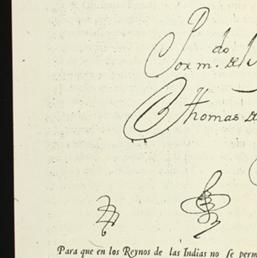 Por m.do del
Thomas de
Para que en los Reynos de las Indias no se perm